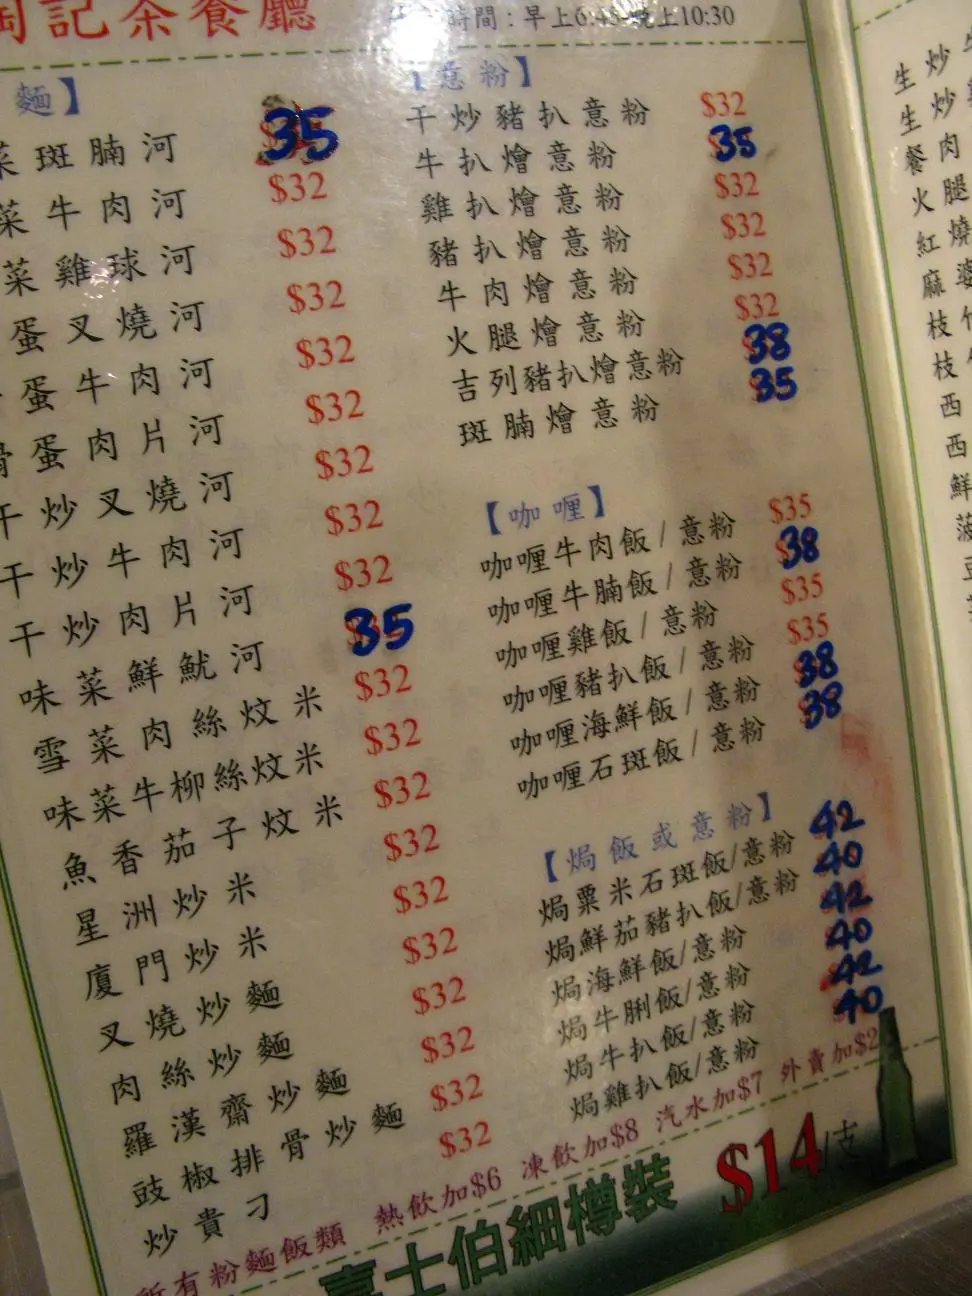 記茶餐廳
時間：早上6:45-晚上10:30
麵】
菜斑腩河 35
菜牛肉河 $32
菜雞球河 $32
蛋叉燒河 $32
蛋牛肉河 $32
蛋肉片河 $32
干炒叉燒河 $32
干炒牛肉河 $32
干炒肉片河 $32
味菜鮮魷河 35
雪菜肉絲炆米 $32
味菜牛柳絲炆米 $32
魚香茄子炆米 $32
星洲炒米 $32
廈門炒米 $32
叉燒炒麵 $32
肉絲炒麵 $32
羅漢齋炒麵 $32
豉椒排骨炒麵 $32
炒貴刁 $32
【意粉】
干炒豬扒意粉 $32
牛扒燴意粉 35
雞扒燴意粉 $32
豬扒燴意粉 $32
牛肉燴意粉 $32
火腿燴意粉 $32
吉列豬扒燴意粉 38
斑腩燴意粉 35
【咖喱】
咖喱牛肉飯/意粉 $35
咖喱牛腩飯/意粉 38
咖喱雞飯/意粉 $35
咖喱豬扒飯/意粉 $35
咖喱海鮮飯/意粉 38
咖喱石斑飯/意粉 38
【焗飯或意粉】
焗粟米石斑飯/意粉 42
焗鮮茄豬扒飯/意粉 40
焗海鮮飯/意粉 42
焗牛脷飯/意粉 40
焗牛扒飯/意粉 42
焗雞扒飯/意粉 40
所有粉麵飯類 熱飲加$6 凍飲加$8 汽水加$7 外賣加$2
嘉士伯細樽裝 $14/支
生炒
生炒
餐肉
火腿
紅燒
麻婆
枝竹
枝
西
西
鮮
菠